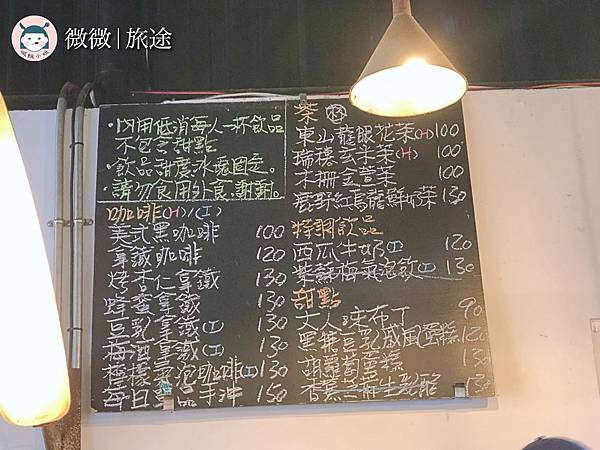 微微|旅途
·內用低消每人一杯飲品
不包含甜點
·飲品甜度、冰塊固定。
·請勿食用外食,謝謝。
咖啡(H)/(I)
美式黑咖啡 100
拿鐵咖啡 120
烤杏仁拿鐵 130
蜂蜜拿鐵 130
豆乳拿鐵(I) 130
梅酒拿鐵(I) 130
檸檬氣泡咖啡(I) 130
每日單品手沖 150
茶
東山龍眼花茶(H) 100
瑞穗玄米茶(H) 100
木柵金萱茶 100
鹿野紅烏龍鮮奶茶 130
特調飲品
西瓜牛奶(I) 120
紫蘇梅氣泡飲(I) 130
甜點
大人味布丁 90
黑糖豆乳戚風蛋糕 120
胡蘿蔔蛋糕 130
香蕉芝麻生乳酪 130